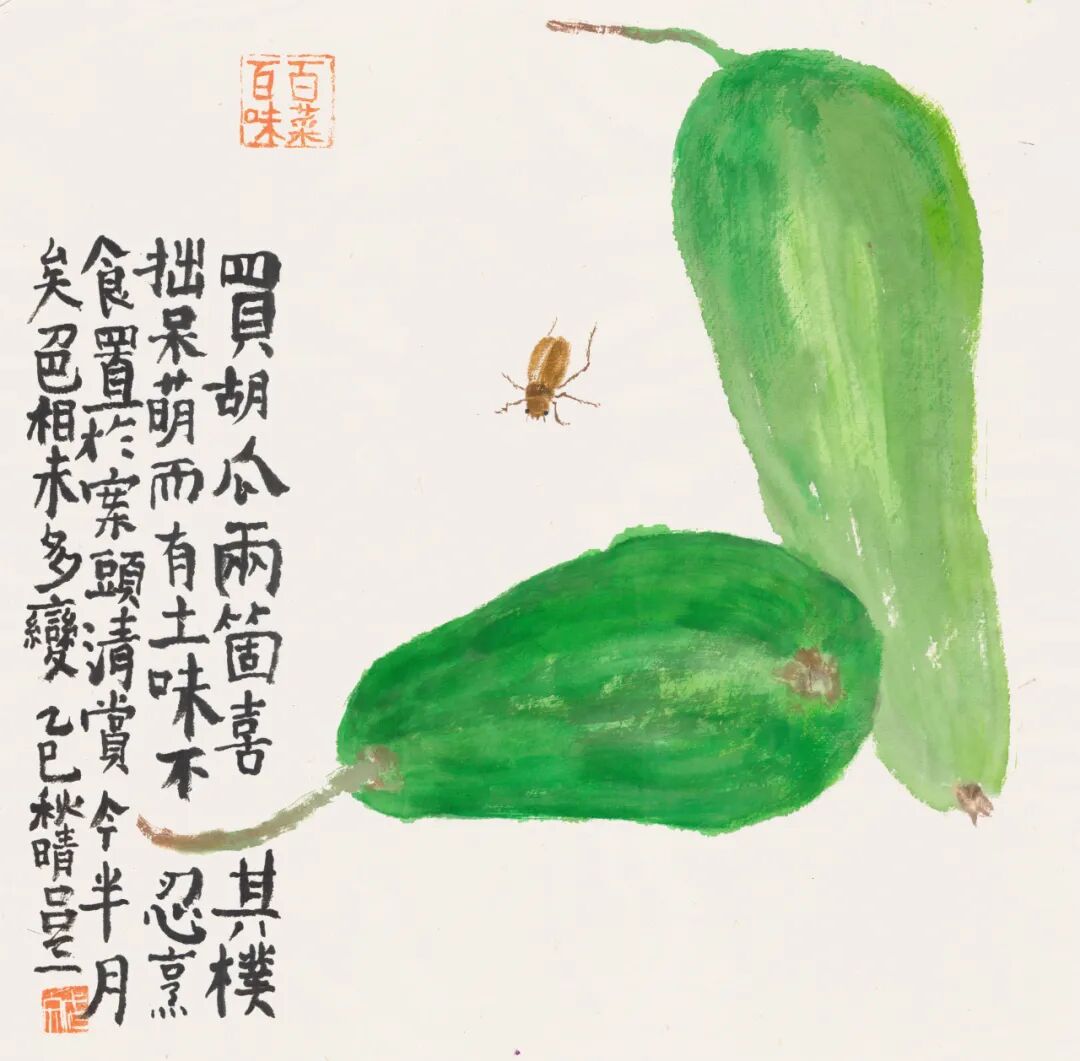 百菜
百味
買胡瓜兩箇喜其樸
拙呆萌而有土味不忍烹
食置於案頭清賞今半月
矣色相未多變乙巳秋晴吕三